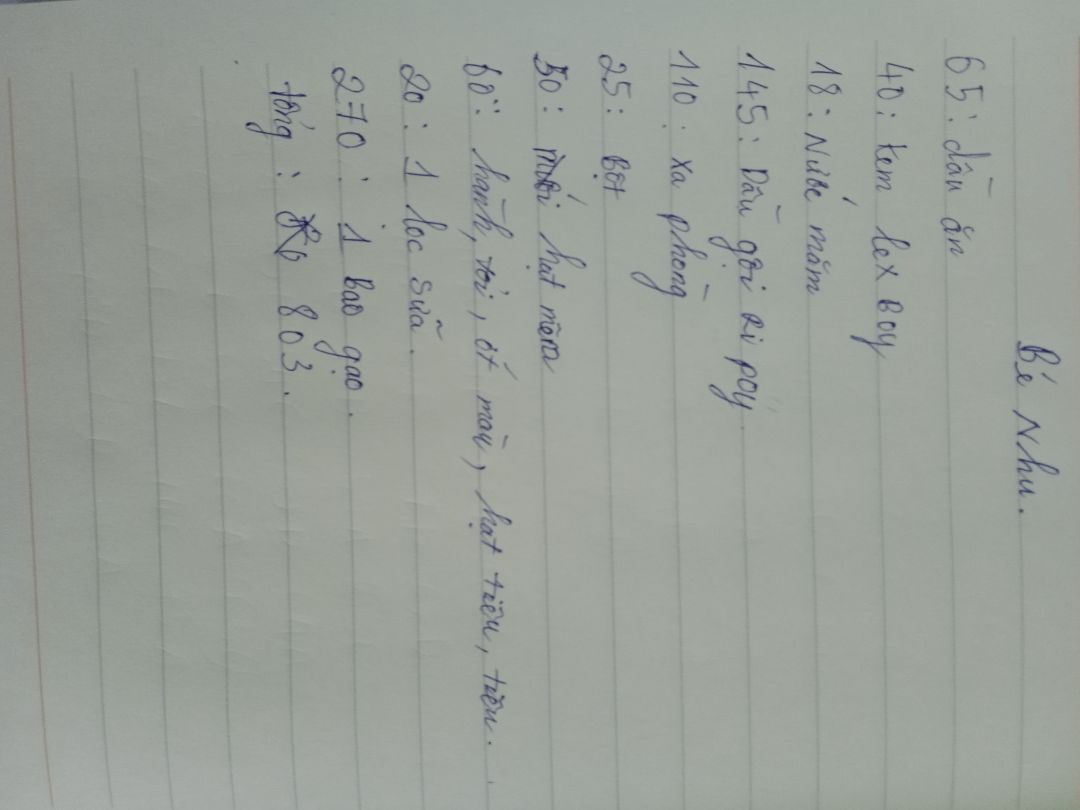 Bé Như.
65: dầu ăn
40: kem lex Boy
18: Nước mắm
145: Dầu gội Ri poy
110: xa phòng
25: Bột
50: hạt nêm
60: hành, tỏi, ớt màu, hạt tiêu, tiêu.
20: 1 lốc sữa.
270: 1 bao gạo.
tổng: 803.